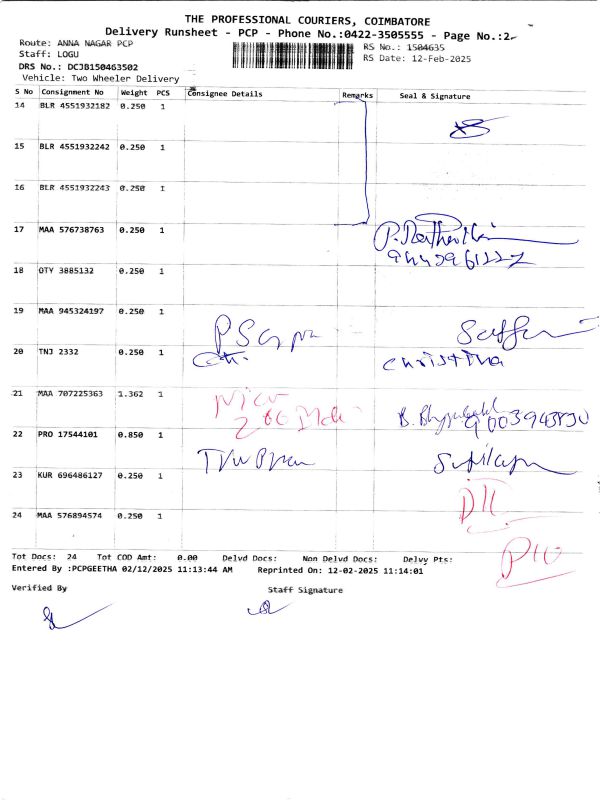 THE PROFESSIONAL COURIERS, COIMBATORE
Delivery Runsheet - PCP - Phone No.:0422-3505555 - Page No.:2
Route: ANNA NAGAR PCP
RS No.: 1504635
Staff: LOGU
RS Date: 12-Feb-2025
DRS No.: DCJB150463502
Vehicle: Two Wheeler Delivery
S No Consignment No Weight PCS Consignee Details Remarks Seal & Signature
14 BLR 4551932182 0.250 1
15 BLR 4551932242 0.250 1
16 BLR 4551932243 0.250 1
17 MAA 576738763 0.250 1
18 OTY 3885132 0.250 1
19 MAA 945324197 0.250 1
20 TNJ 2332 0.250 1 Christina
21 MAA 707225363 1.362 1
9003943890
22 PRO 17544101 0.850 1
23 KUR 696486127 0.250 1
24 MAA 576894574 0.250 1
PTO
Tot Docs: 24 Tot COD Amt: 0.00 Delvd Docs: Non Delvd Docs: Delvy Pts:
Entered By :PCPGEETHA 02/12/2025 11:13:44 AM Reprinted On: 12-02-2025 11:14:01
Verified By Staff Signature